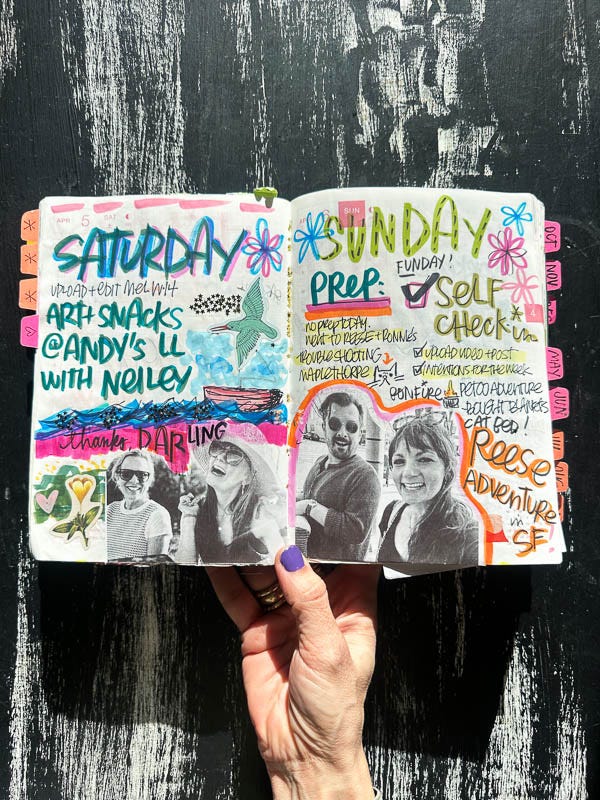 APR 5 SAT
SATURDAY
UPLOAD + EDIT MEL WY4
ART SNACKS
@ANDY'S LL
WITH NEILEY
thanks, DARLING
SUN
SUNDAY
FUNDAY!
PREP:
SELF
CHECK-in
4
no prep today.
went to REESE + RONNIES
TROUBLE SHOOTING
MAPLETHORPE
UPLOAD VIDEO + POST
INTENTIONS FOR THE WEEK
BONFIRE
PETCO ADVENTURE
BOUGHT BLANKETS
CAT BED!
REESE
ADVENTURE
in
SF
OCT
NOV
DEC
MAY
JUN